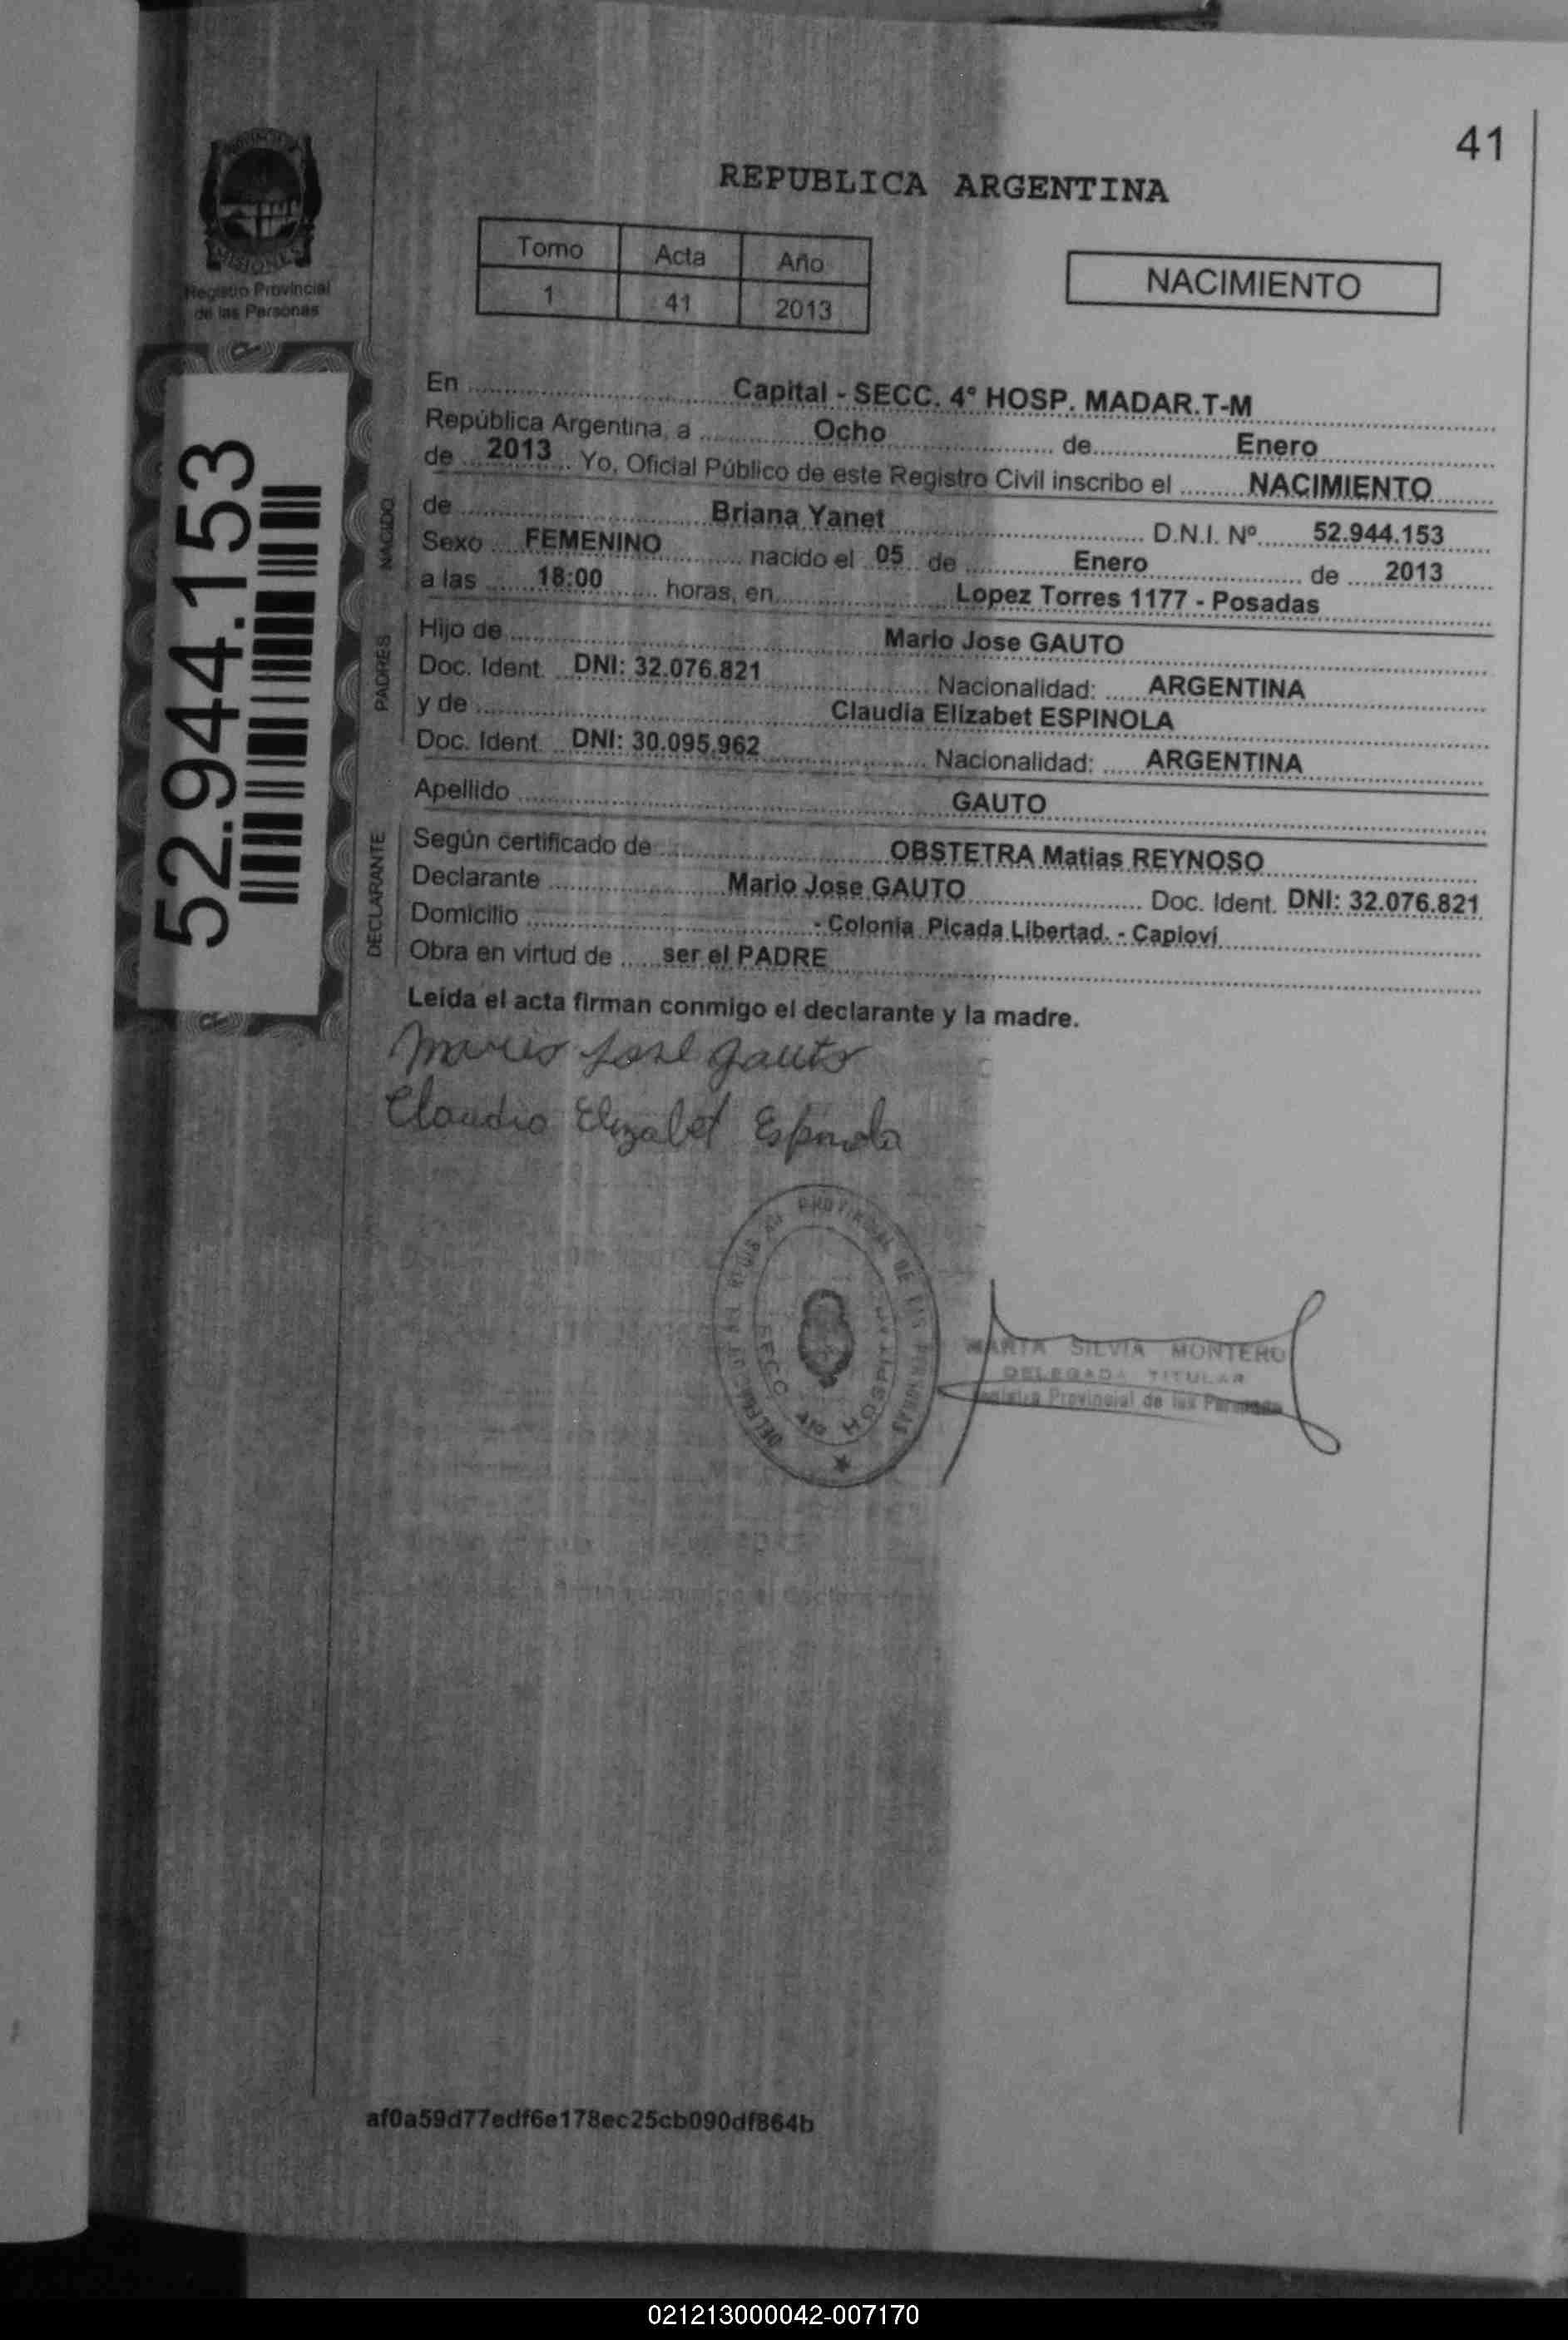 41
REPUBLICA ARGENTINA
PROVINCIA
MISIONES
Registro Provincial
de las Personas
Tomo Acta Año
1 41 2013
NACIMIENTO
52.944.153
En Capital - SECC. 4° HOSP. MADAR.T-M
República Argentina, a Ocho de Enero
de 2013 Yo, Oficial Público de este Registro Civil inscribo el NACIMIENTO
NACIDO
de Briana Yanet D.N.I. Nº 52.944.153
Sexo FEMENINO nacido el 05 de Enero de 2013
a las 18:00 horas, en Lopez Torres 1177 - Posadas
PADRES
Hijo de Mario Jose GAUTO
Doc. Ident. DNI: 32.076.821 Nacionalidad: ARGENTINA
y de Claudia Elizabet ESPINOLA
Doc. Ident. DNI: 30.095.962 Nacionalidad: ARGENTINA
Apellido GAUTO
DECLARANTE
Según certificado de OBSTETRA Matias REYNOSO
Declarante Mario Jose GAUTO Doc. Ident. DNI: 32.076.821
Domicilio - Colonia Picada Libertad. - Caplovi
Obra en virtud de ser el PADRE
Leída el acta firman conmigo el declarante y la madre.
Mario Jose Gauto
Claudia Elizabet Espinola
PROVINCIAL DE LAS PERSONAS
SECC HOSPITAL
MARTA SILVIA MONTERO
DELEGADA TITULAR
Registro Provincial de las Personas
af0a59d77edf6e178ec25cb090df864b
021213000042-007170